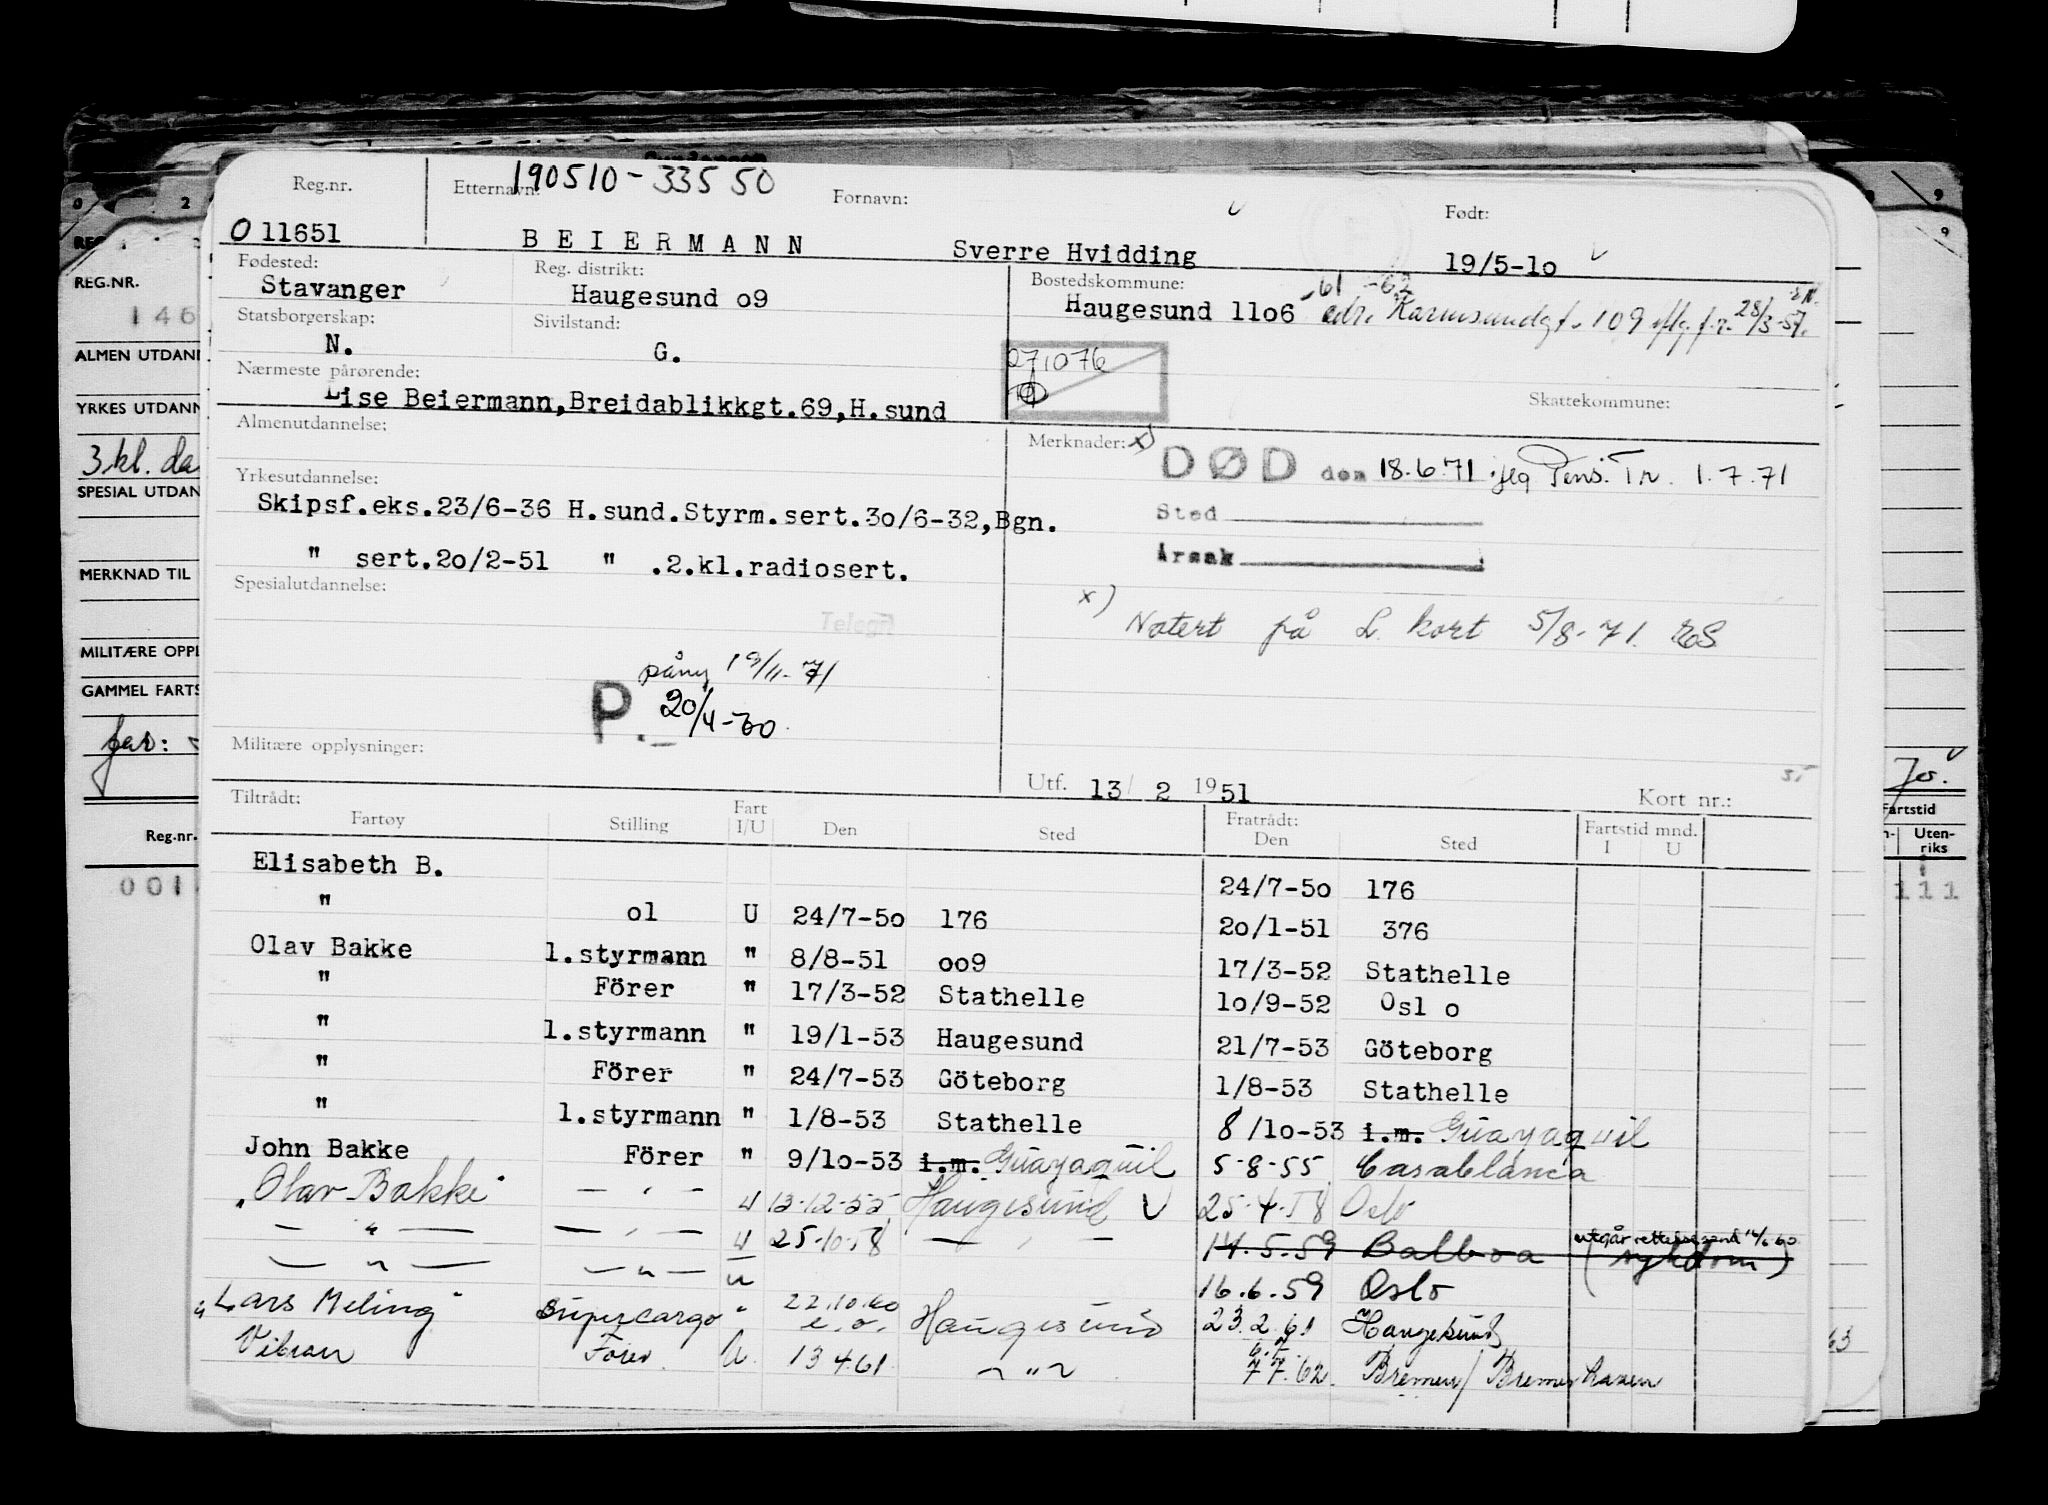 Reg.nr.
Etternavn:
190510-33550
Fornavn:
Født:
O 11651
BEIERMANN
Sverre Hvidding
19/5-1o
Fødested:
Stavanger
Reg. distrikt:
Haugesund o9
Bostedskommune:
61-62
Haugesund 11o6 adr. Karmsundgt. 109 iflg. f.r. 28/3-57.
Statsborgerskap:
N.
Sivilstand:
G.
271076
Nærmeste pårørende:
Lise Beiermann,Breidablikkgt.69,H.sund
Skattekommune:
Almenutdannelse:
Merknader: x)
DØD den 18.6.71 Pens. Tr. 1.7.71
Sted
Årsak
Yrkesutdannelse:
Skipsf.eks.23/6-36 H.sund.Styrm.sert.3o/6-32,Bgn.
" sert.2o/2-51 " .2.kl.radiosert.
x) Notert på L. kort 5/8-71. RS
Spesialutdannelse:
Telegr
påny 19/11-71
P. 20/4-60.
Militære opplysninger:
Utf. 13/ 2 1951
Kort nr.:
Tiltrådt:
Fartøy
Stilling
Fart I/U
Den
Sted
Fratrådt: Den
Sted
Fartstid mnd. I U
Elisabeth B. 24/7-5o 176
" ol U 24/7-5o 176 2o/1-51 376
Olav Bakke 1.styrmann " 8/8-51 oo9 17/3-52 Stathelle
" Förer " 17/3-52 Stathelle 1o/9-52 Osl o
" 1.styrmann " 19/1-53 Haugesund 21/7-53 Göteborg
" Förer " 24/7-53 Göteborg 1/8-53 Stathelle
" 1.styrmann " 1/8-53 Stathelle 8/1o-53 i.m. Guayaquil
John Bakke Förer " 9/1o-53 i.m. Guayaquil 5-8-55 Casablanca
"Olav Bakke" — " — U 13-12-55 Haugesund U 25.4.58 Oslo
— " — — " — U 25.10.58 — " — 14.5.59 Balboa (sykdom) utgår
— " — — " — U 16.6.59 Oslo
"Lars Meling" Supercargo " 22.10.60 e.o. Haugesund 23.2.61 Haugesund
Vibran Fører U. 13 4.61 — " — 6.7. 7 7.62. Bremen/Bremerhaven
REG.NR.
146
ALMEN UTDANN
YRKES UTDANN
3 kl. da
SPESIAL UTDAN
MERKNAD TIL
MILITÆRE OPPL
GAMMEL FARTS
far:
Reg.nr.
001
Fartstid
Uten-riks
111
63